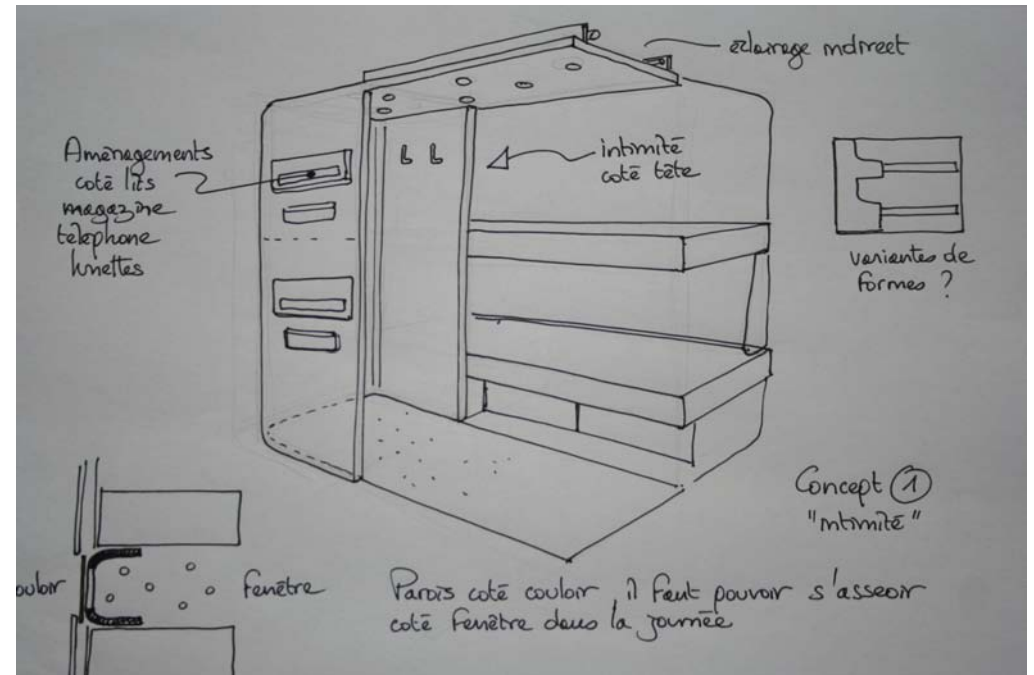 éclairage indirect
Aménagements
coté lits
magazine
telephone
lunettes
intimité
coté tête
variantes de
formes ?
Concept 1
"intimité"
ouloir
Fenêtre
Parois coté couloir, il faut pouvoir s'asseoir
coté fenêtre dans la journée